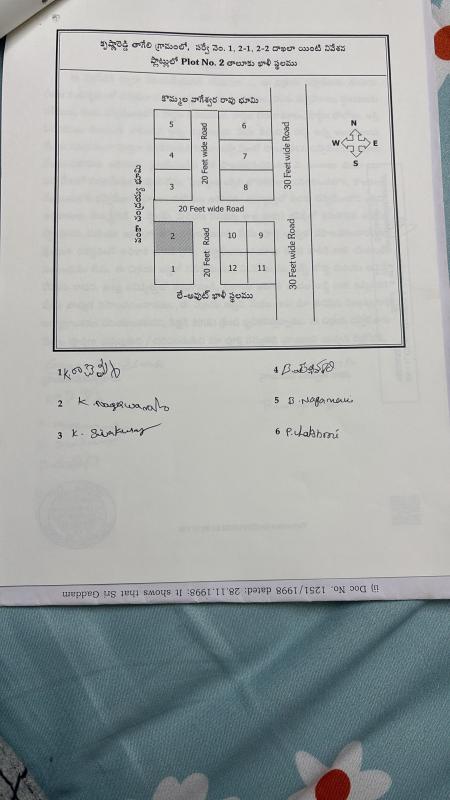 కృష్ణారెడ్డి తాగేలి గ్రామంలో, సర్వే నెం. 1, 2-1, 2-2 దాఖలా యింటి నివేశన
ప్లాట్లులో Plot No. 2 తాలూకు ఖాళీ స్థలము
కొమ్మల నాగేశ్వర రావు భూమి
5
6
4
7
3
8
20 Feet wide Road
30 Feet wide Road
N
W E
S
20 Feet wide Road
2
10 9
1
12 11
20 Feet Road
30 Feet wide Road
లే-అవుట్ ఖాళీ స్థలము
1 K
2 K. Nageswararao
3 K. Sivakumar
4 B.
5 B. Nagamani
6 P. Lakshmi
ii) Doc No. 1251/1998 dated: 28.11.1998: It shows that Sri Gaddam